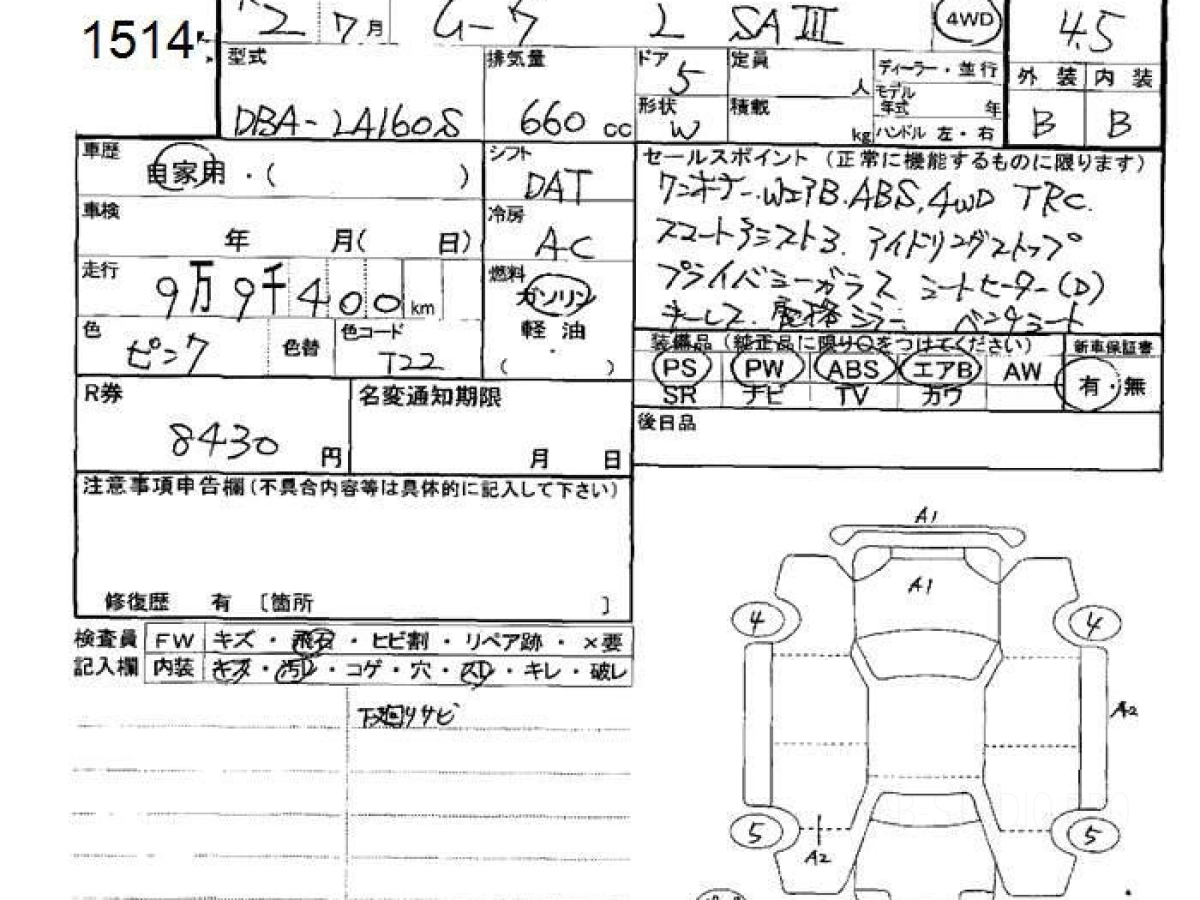 1514
2 7月 ムーヴ L SAIII 4WD 4.5
型式 DBA-LA160S
排気量 660 cc
ドア 5
定員 人
ディーラー・並行
モデル年式 年
形状 W
積載 kg
ハンドル 左・右
外装 内装
B B
車歴 自家用・( )
シフト DAT
車検 年 月( 日)
冷房 AC
走行 9万9千400 km
燃料 ガソリン
軽油
・
( )
色 ピンク
色替
色コード T22
セールスポイント(正常に機能するものに限ります)
ワンオーナー.WエアB.ABS.4WD TRC.
スマートアシスト3. アイドリングストップ
プライバシーガラス シートヒーター(D)
キーレス. 電格ミラー ベンチシート
装備品(純正品に限り〇をつけてください)
新車保証書
PS PW ABS エアB AW
SR ナビ TV カワ
有・無
R券 8430 円
名変通知期限 月 日
後日品
注意事項申告欄(不具合内容等は具体的に記入して下さい)
修復歴 有 〔箇所 〕
検査員 FW キズ・飛石・ヒビ割・リペア跡・×要
記入欄 内装 キズ・汚レ・コゲ・穴・スレ・キレ・破レ
下廻りサビ
A1
A1
4 4
A2
5 5
A2